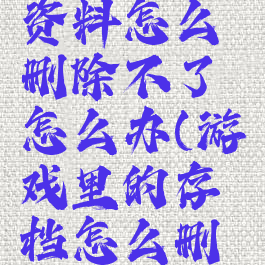 资料怎么
删除不了
怎么办(游
戏里的存
档怎么删